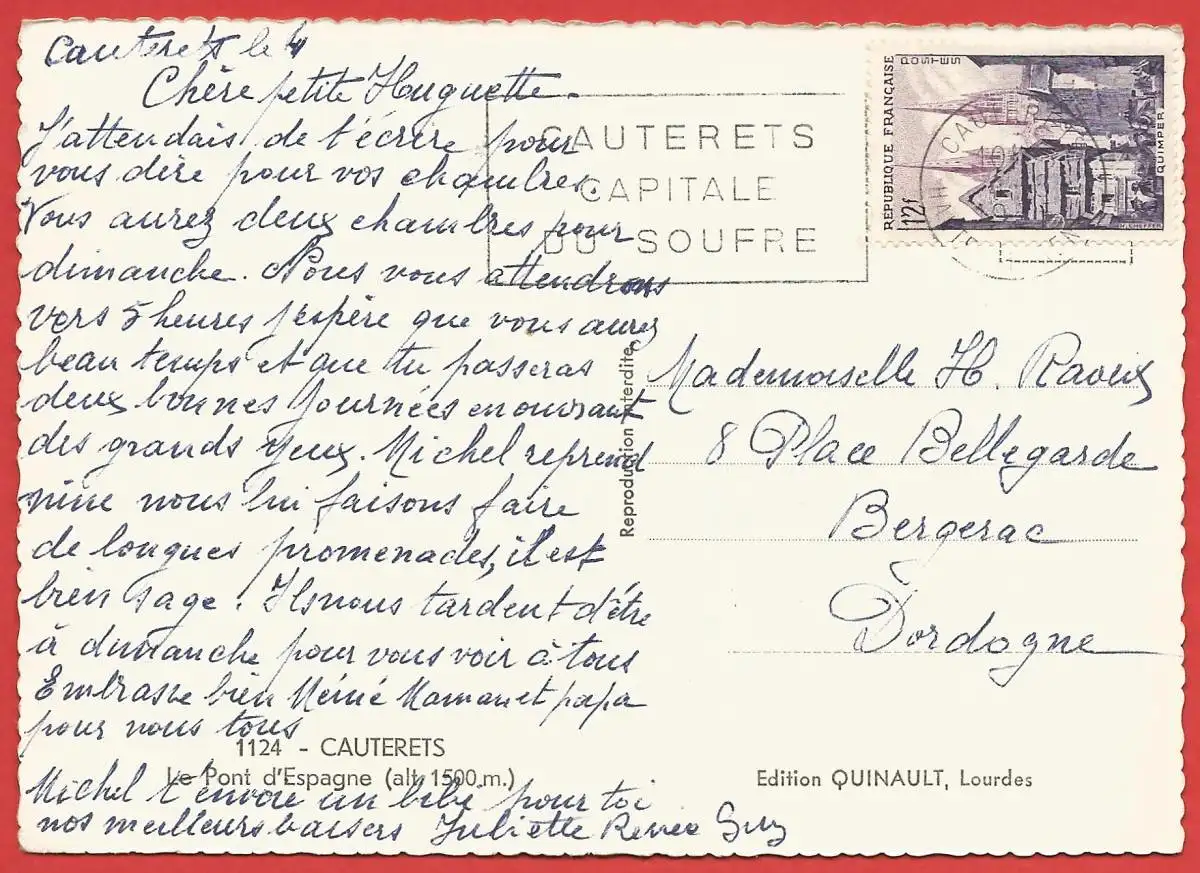 Cauterets le 4
Chère petite Huguette.
J'attendais de t'écrire pour
vous dire pour vos chambres.
Vous aurez deux chambres pour
dimanche. Nous vous attendrons
vers 5 heures j'espère que vous aurez
beau temps et que tu passeras
deux bonnes journées en ouvrant
des grands yeux. Michel reprend
mine nous lui faisons faire
de longues promenades, il est
bien sage. Ils nous tardent d'être
à dimanche pour vous voir à tous
Embrasse bien Mémé Maman et papa
pour nous tous
1124 - CAUTERETS
Le Pont d'Espagne (alt. 1500 m.)
Michel t'envoie un bibi pour toi
nos meilleurs baisers Juliette Renée Guy
CAUTERETS
CAPITALE
DU SOUFRE
RÉPUBLIQUE FRANÇAISE
POSTES
12f
QUIMPER
CAUTERETS
Reproduction interdite
Mademoiselle H. Raveix
8 Place Bellegarde
Bergerac
Dordogne
Edition QUINAULT, Lourdes